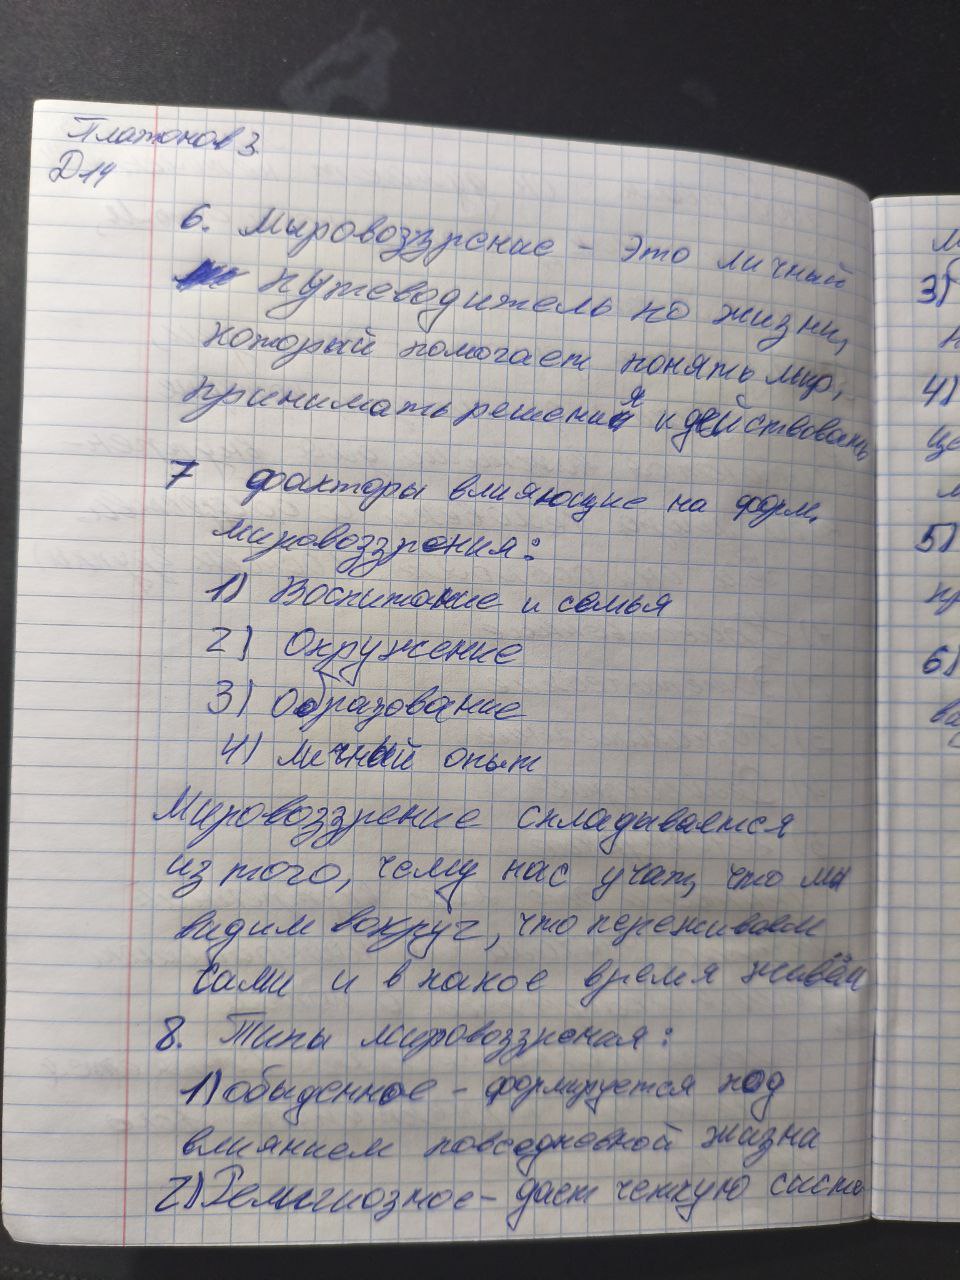 Платонов З.
Д14
6. Мировоззрение - это личный
путеводитель по жизни,
который помогает понять мир,
принимать решения и действовать
7 факторы влияющие на форм.
мировоззрения:
1) Воспитание и семья
2) Окружение
3) Образование
4) личный опыт
Мировоззрение складывается
из того, чему нас учат, что мы
видим вокруг, что переживаем
сами и в какое время живём
8. Типы мировоззрения:
1) обыденное - формируется под
влиянием повседневной жизни
2) Религиозное - дает четкую систе
3)
4)
це
5)
пр
6)